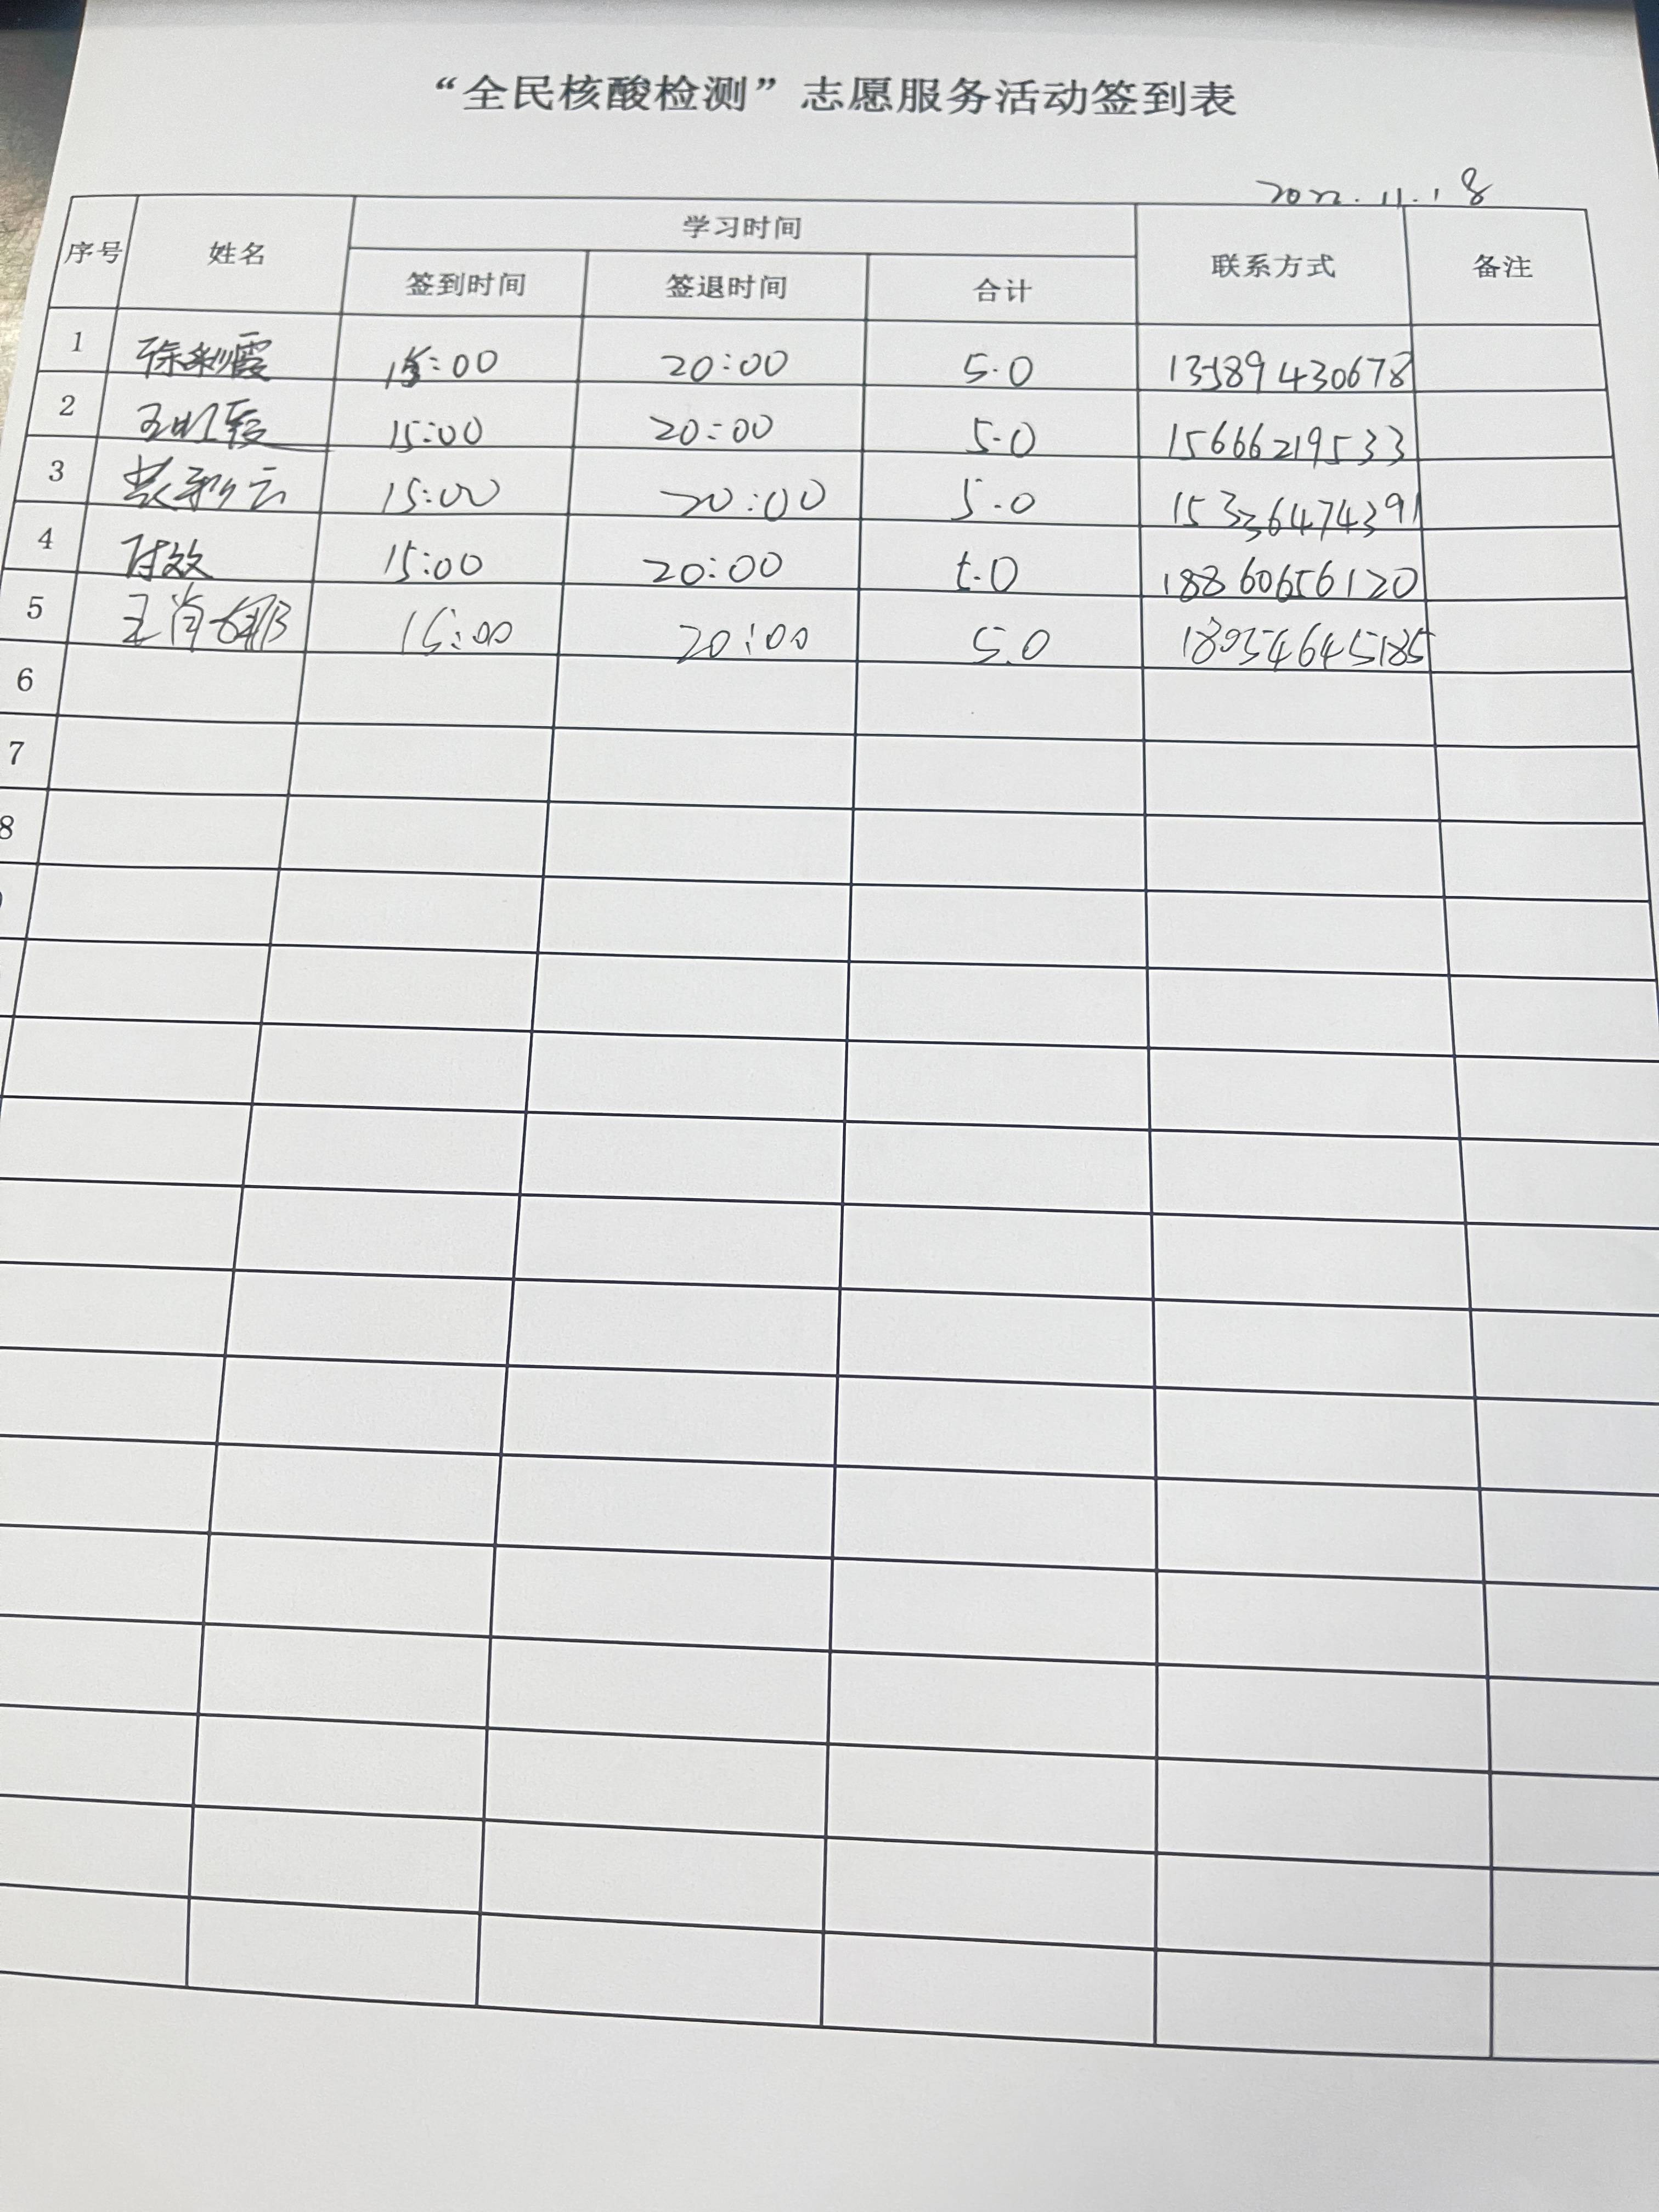 “全民核酸检测”志愿服务活动签到表
2022.11.18
序号 姓名 学习时间 联系方式 备注
签到时间 签退时间 合计
1 徐 霞 15:00 20:00 5.0 13589430678
2 15:00 20:00 5.0 15666219533
3 15:00 20:00 5.0 15336474391
4 付效 15:00 20:00 5.0 18860656120
5 王肖娜 15:00 20:00 5.0 18954645185
6
7
8